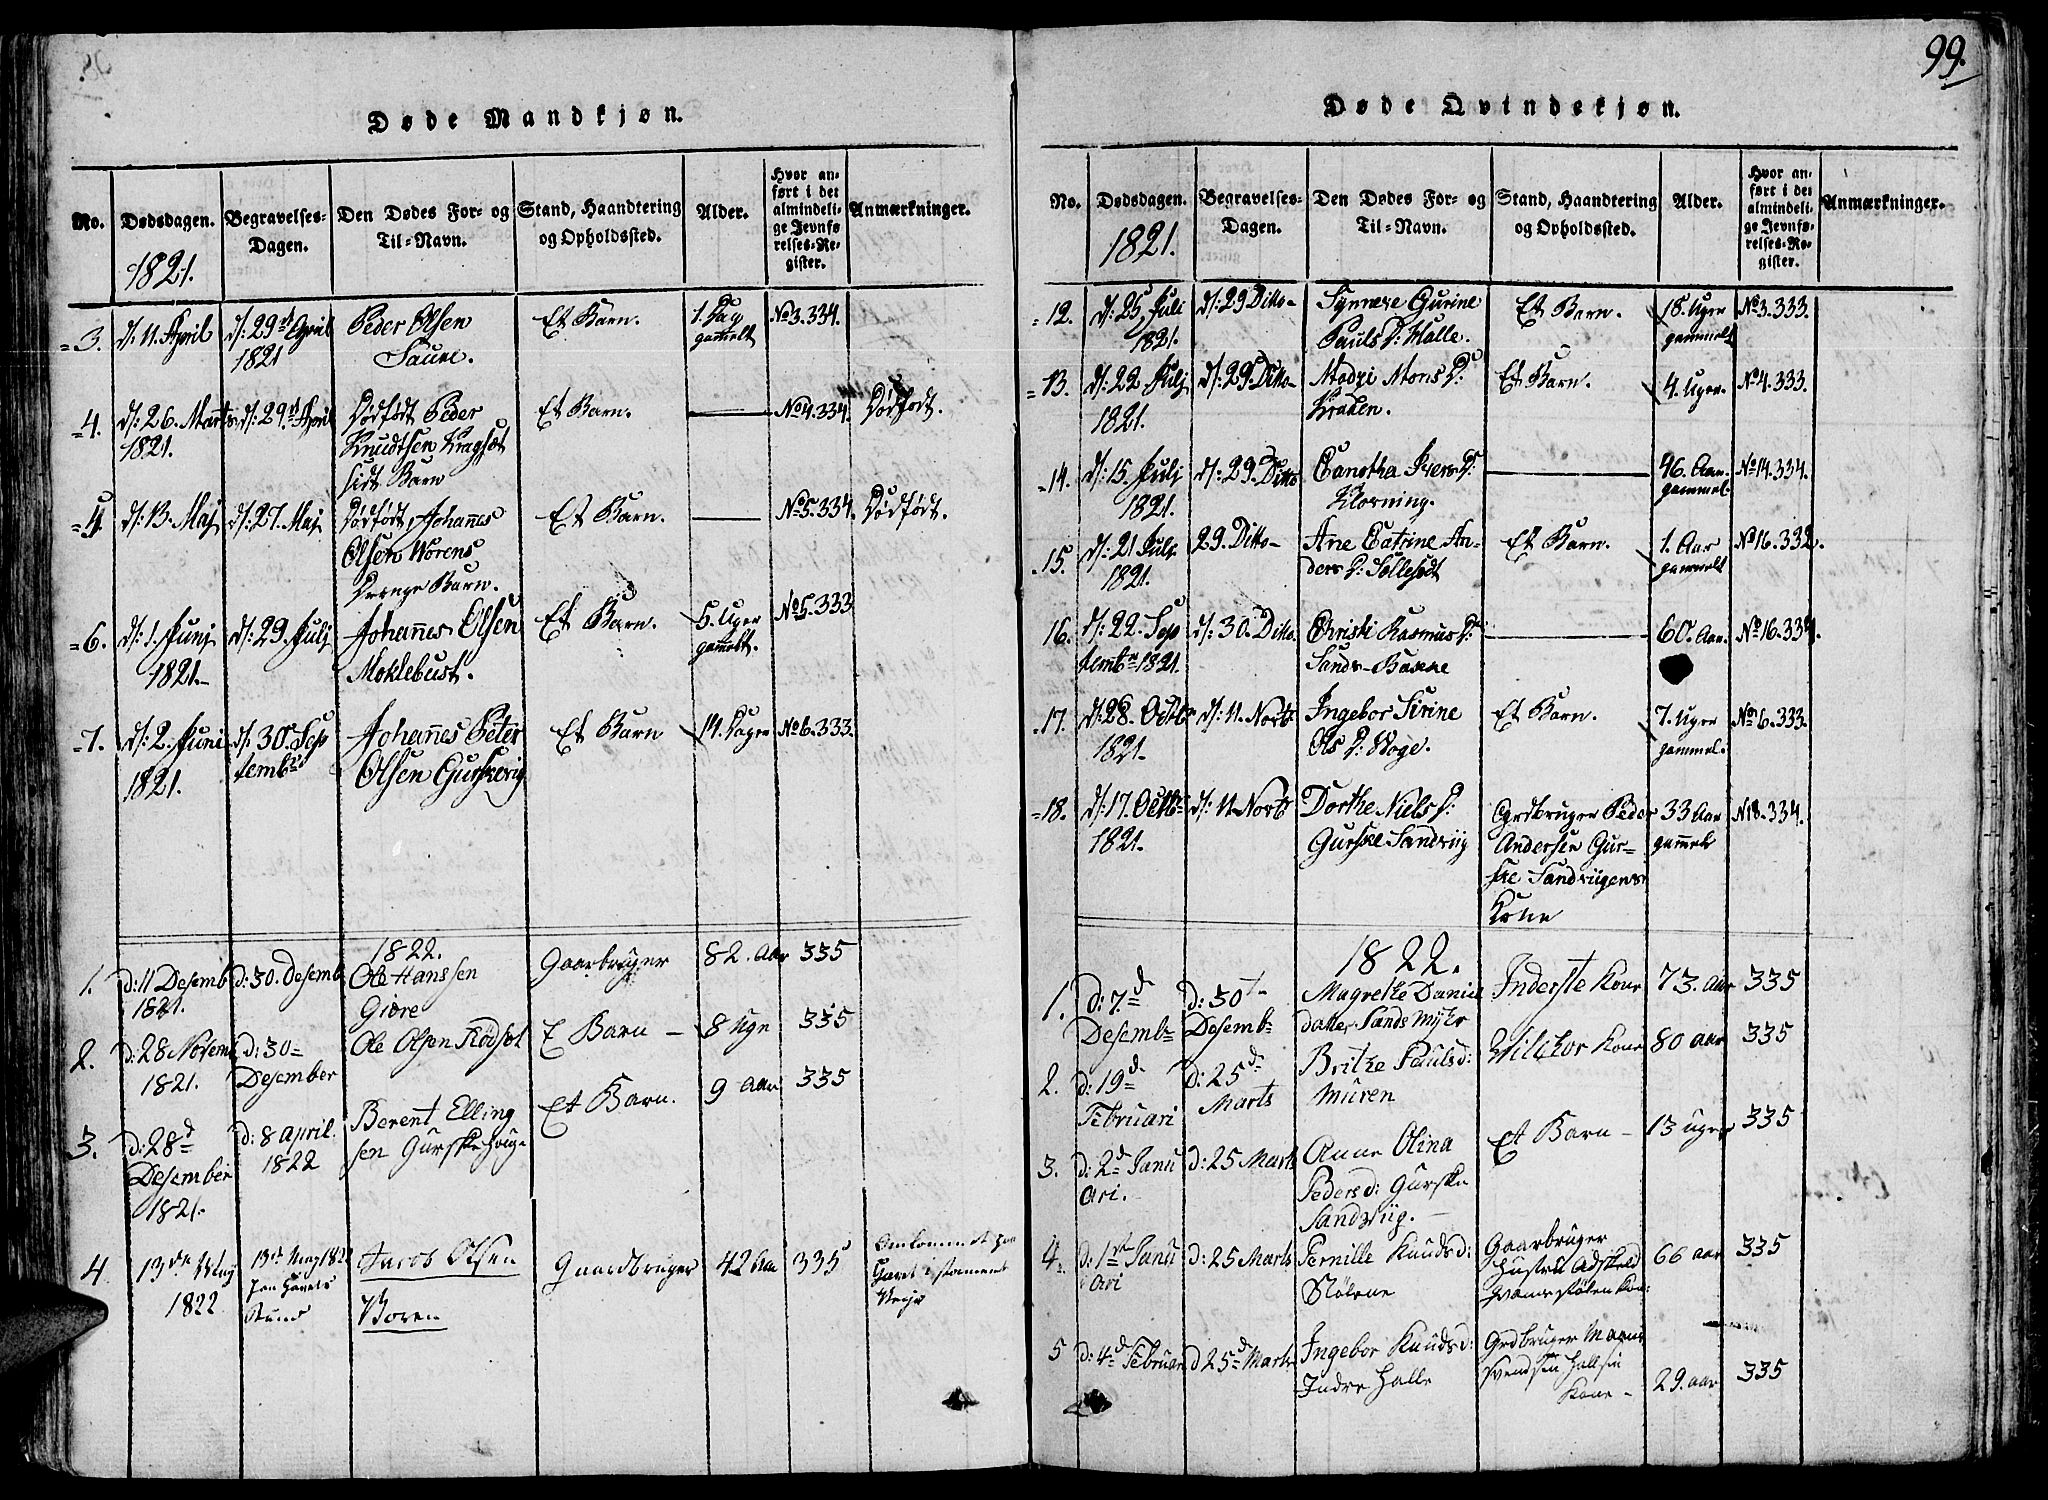 99.
Døde Mandkjøn.
No.
Dødsdagen.
1821.
Begravelses-
Dagen.
Den Dødes For- og
Til-Navn.
Stand, Haandtering
og Opholdssted.
Alder.
Hvor an-
ført i det
almindeli-
ge Jevnfø-
relses-Re-
gister.
Anmærkninger.
3.
d: 11. April
d: 29d April
1821
Peder Olsen
Saure.
Et Barn.
1. Dag
gammelt
No 3.334.
4.
d: 26. Marts
1821.
d: 29d April
Dødfødt Peder
Knudtsen Kragsæt
sidt Barn
Et Barn.
No 4.334.
Dødfødt.
d: 13. Maj
d: 27. Maj
Dødfødt Johannes
Olsen Worens
Drænge Barn.
Et Barn.
No 5.334.
Dødfødt.
6.
d: 1. Junj
1821.
d: 29. Julj
Johannes Olsen
Moklebust.
Et Barn.
5. Uger
gammelt.
No 5.333
7.
d: 2. Juni
1821.
d: 30. Sep
tembr
Johannes Peter
Olsen Gurskevig
Et Barn
14. Dager
No 6.333.
1822.
1.
d: 11 Desemb
1821.
d: 30. Desemb
Ole Hanssen
Giøre
Gaarbruger
82. Aar
335
2.
d: 28 Novemb
1821.
d: 30
Desember
Ole Olsen Rødset
E Barn
8 Uge
335
3.
d: 28d
Desember
1821.
d: 8 April.
1822
Berent Elling
sen Gurskehoug
Et Barn.
9 Aar
335
4
13de May
1822
13d May 182
Jacob Olsen
Voren
Gaardbruger
42 Aar
335
Omkommet paa
Havet
Døde Qvindekjøn.
No.
Dødsdagen.
1821.
Begravelses-
Dagen.
Den Dødes For- og
Til-Navn.
Stand, Haandtering
og Opholdssted.
Alder.
Hvor an-
ført i det
almindeli-
ge Jevnfø-
relses-Re-
gister.
Anmærkninger.
12.
d: 25 Juli
1821.
d: 29 Ditto
Synneve Gurine
Pauls D: Halle.
Et Barn.
18. Uger
gammelt
No 3.333.
13.
d: 22 Julj
1821.
d: 29. Ditto
Madzi Mons D:
Kraken.
Et Barn.
4. Uger.
No 4.333.
14.
d: 15. Julj
1821.
d: 29. Ditto
Canotha Ivers D:
Klovning.
46. Aar.
gammel.
No 14.334.
15.
d: 21 Julj
1821.
29. Ditto
Ane Catrine An-
ders D: Søllesødt
Et Barn.
1. Aar
gammelt
No 16.332.
16.
d: 22. Sep
tembr 1821.
d: 30. Ditto
Christi Rasmus D:
Sands-Bakene
60. Aar.
No 16.334.
17.
d: 28. Octbr
1821.
d: 11. Novb
Ingebor Sirine
Ols D: Woge.
Et Barn.
7. Uger
gammel.
No 6.333.
18.
d: 17. Octb
1821.
d: 11 Novb
Dorthe Niels D:
Gurske Sandviig
Grdbruger Peder
Andersen Gur-
ske Sandviigens
Kone
33 Aar
gammel
N 18.334.
1822.
1.
d: 7d
Desemb
d: 30t
Desemb
Magrethe Daniel
datter Sands Myhr
Inderste Kone
73. Aar
335
2.
d: 19d
Februari
d: 25d
Marts
Brithe Paulsd:
Muren
Vilchor Kone
80 aar
335
3.
d: 2d Janu
Ari.
d: 25 Marts
Anne Olina
Pedersd: Gurske
Sandviig.
Et Barn
13 uger
335
4.
d: 1st Janu
ari
d: 25 Marts
Pernille Knudsd:
StøLene
Gaarbruger
Hustru Adskeld
66 aar
335
5
d: 4d Februar
d 25d Marts
Ingebor Knudsd:
Indre Halle
Grdbruger Maans
Svendsen Hallsin
Kone
29. aar
335